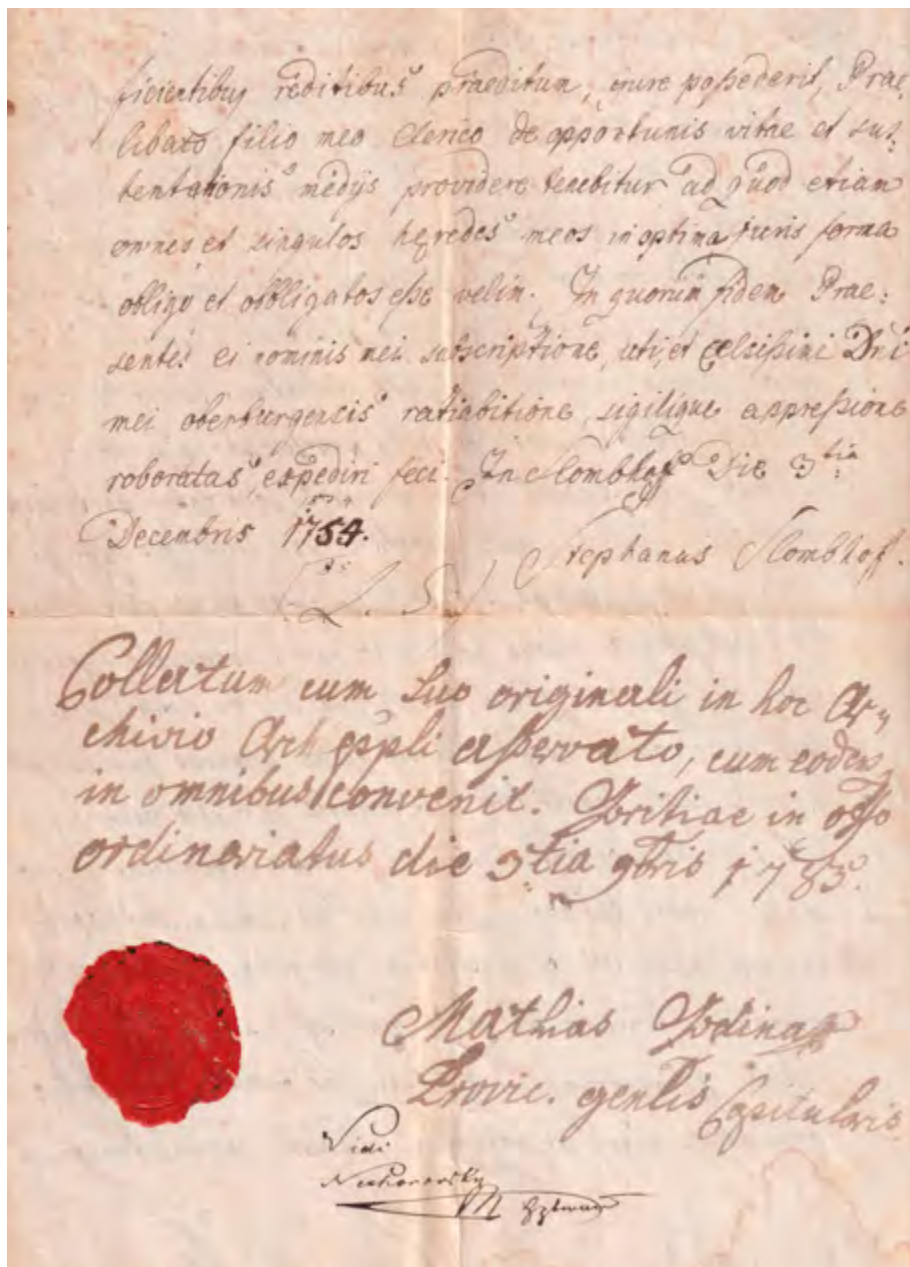 ficientibus reditibus praeditum, iure possederit, Prae,
libato filio meo Clerico de opportunis vitae et sus:
tentationis medijs providere tenebitur ad quod etiam
omnes et singulos heredes meos in optima iuris forma
obligo et obbligatos esse velim. In quorum fidem Prae:
sentes ei nominis mei subscriptione, uti, et Celsissimi Dni
mei oberburgensis ratiabitione, sigilique appressione
roboratas, expediri feci. In Slombhoff Die 3tia
Decembris 1754.
Stephanus Slombhoff.
(L. S.)
Collatum cum suo originali in hoc Ar,,
chivio Arch eppli asservato, cum eodem
in omnibus convenit. Goritiae in offo
ordinariatus die 3tia 9bris 1785.
Mathias
Provic. gentlis Capitularis
Vidi